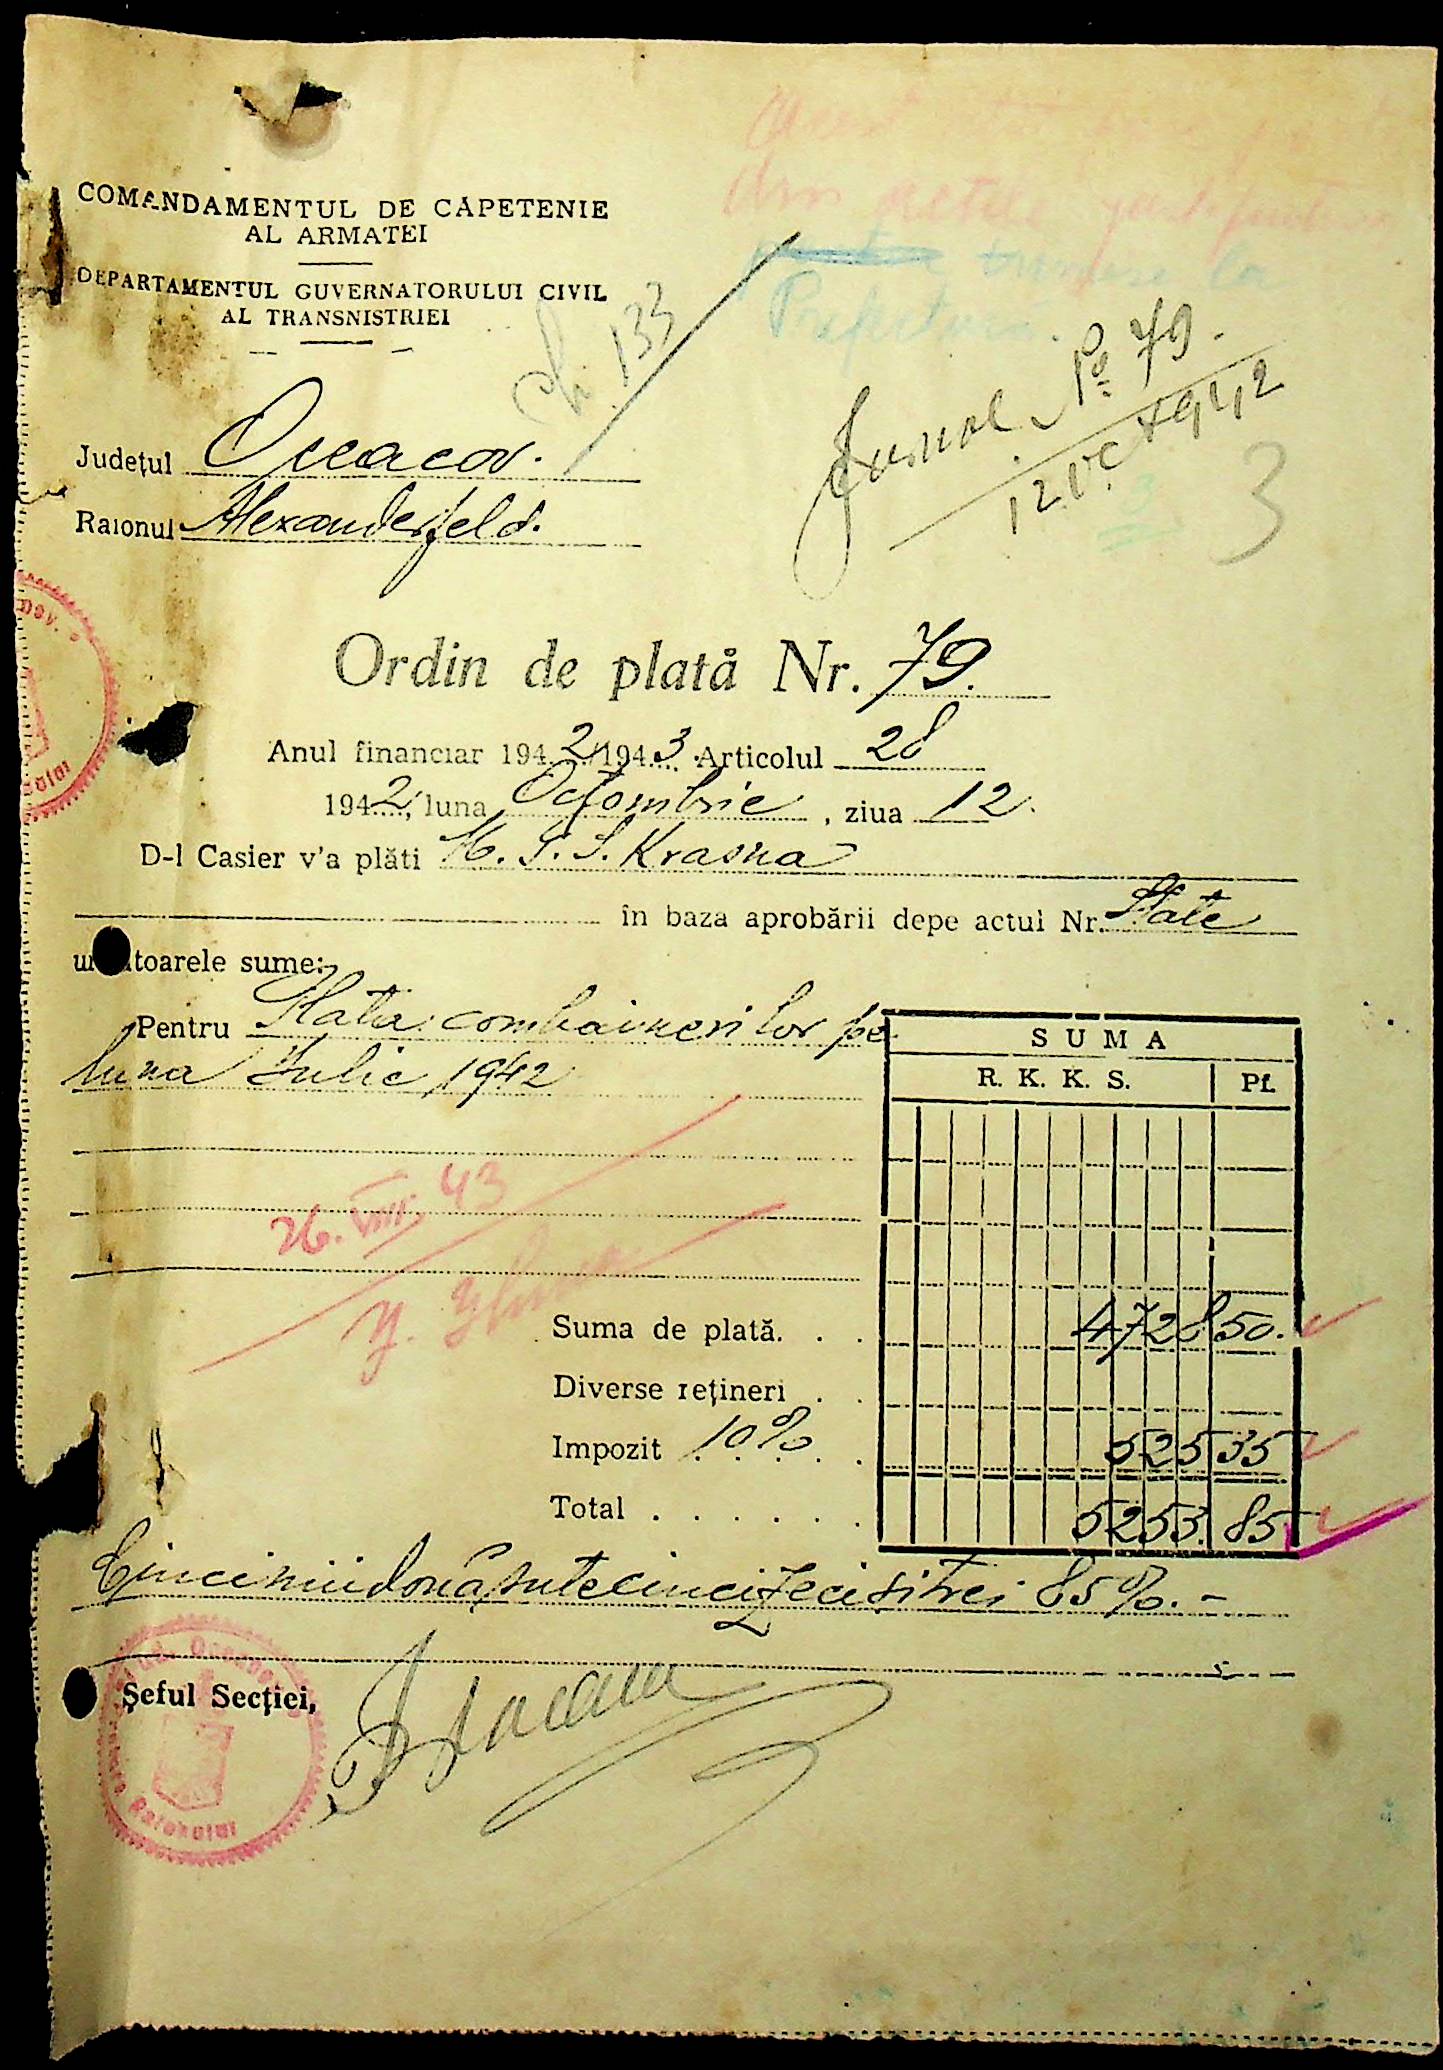 COMANDAMENTUL DE CAPETENIE
AL ARMATEI
DEPARTAMENTUL GUVERNATORULUI CIVIL
AL TRANSNISTRIEI
133
trimise la
Prefectura.
Jurnal No 79.
12 oct 1942
3
3
Județul Oceacov.
Raionul Alexanderfeld.
Ordin de plată Nr. 79.
Anul financiar 1942/1943 Articolul 28
1942, luna Octombrie, ziua 12.
D-l Casier v'a plăti M. T. S. Krasna
în baza aprobării depe actul Nr. State
următoarele sume:
Pentru Plata combainerilor pe
luna Iulie 1942
SUMA
R. K. K. S. Pf.
26. VIII. 43
Suma de plată. . . 4728 50.
Diverse rețineri . .
Impozit 10% . . . . . 525 35
Total . . . . . . . 5253. 85
Cinci mii două sute cinci zeci si trei 85%.-
Șeful Secției,
Raionului